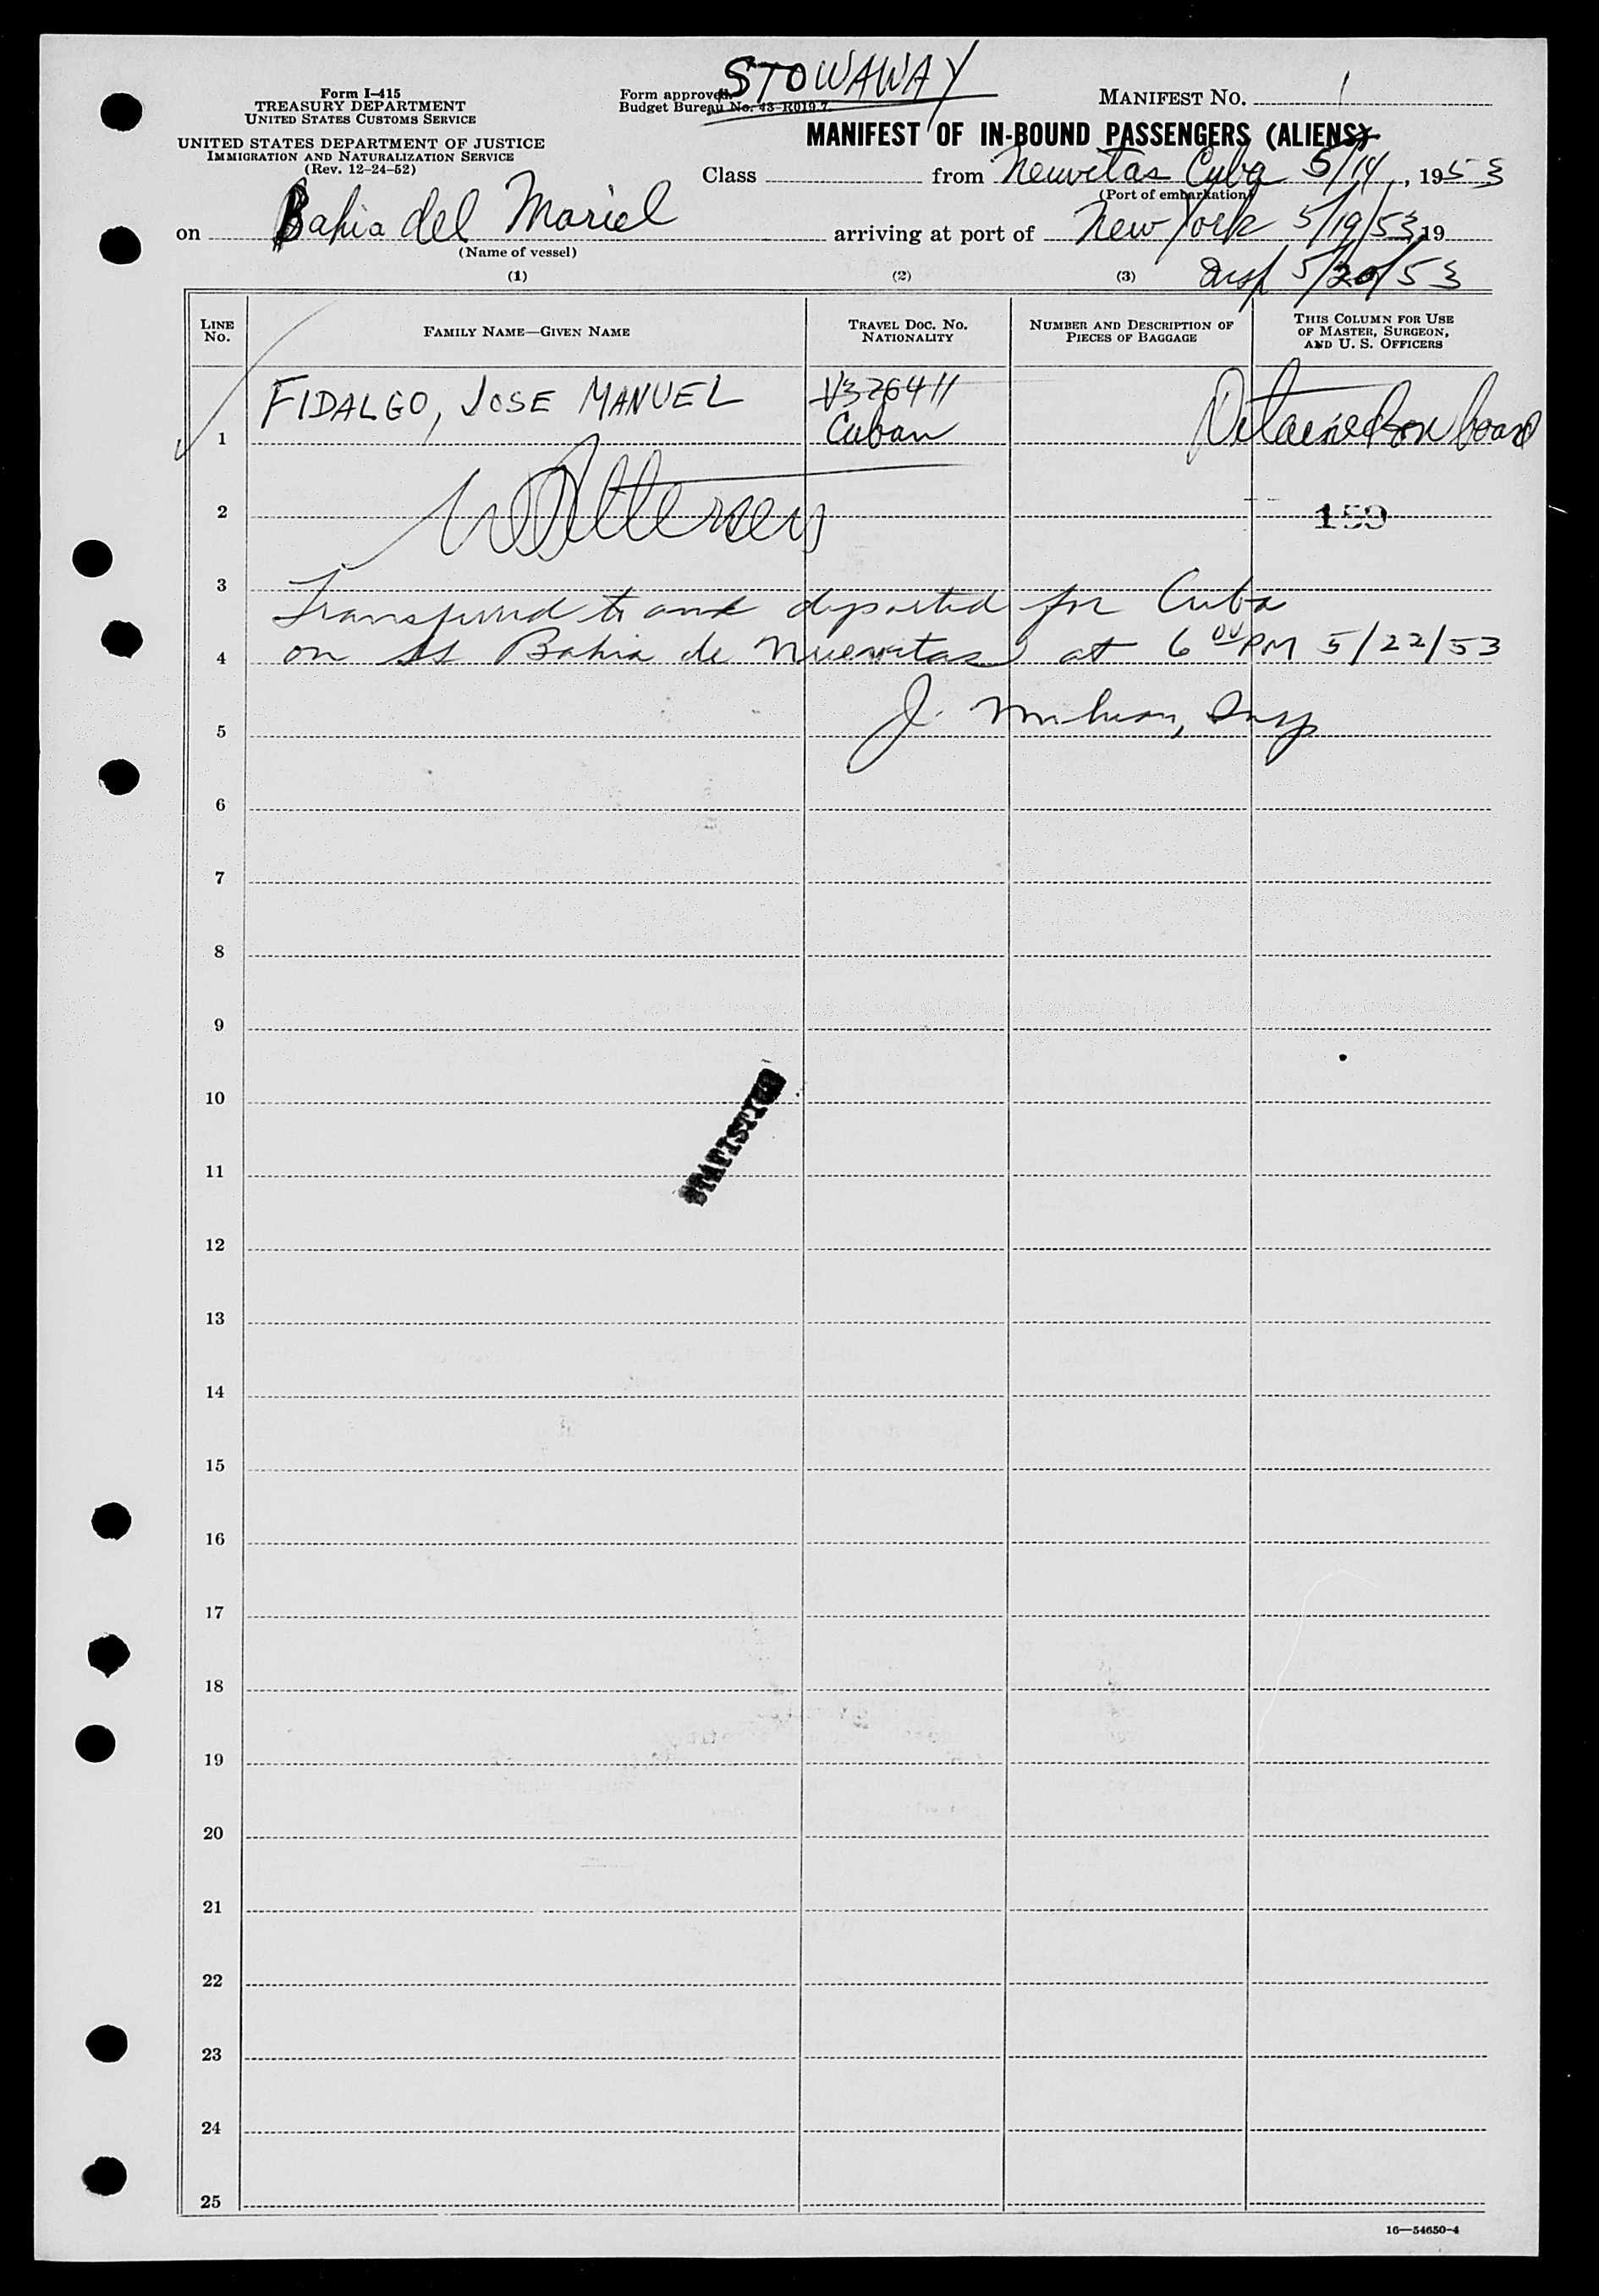 STOWAWAY
Form I-415
TREASURY DEPARTMENT
UNITED STATES CUSTOMS SERVICE
UNITED STATES DEPARTMENT OF JUSTICE
IMMIGRATION AND NATURALIZATION SERVICE
(Rev. 12-24-52)
Form approved.
Budget Bureau No. 43-R019.7.
MANIFEST NO. 1
MANIFEST OF IN-BOUND PASSENGERS (ALIENS)
Class from Neuvitas Cuba 5/14, 1953
(Port of embarkation)
on Bahia del Mariel arriving at port of New York 5/19/53, 19
(Name of vessel)
Insp 5/20/53
(1) (2) (3)
LINE NO. FAMILY NAME—GIVEN NAME TRAVEL DOC. No. NATIONALITY NUMBER AND DESCRIPTION OF PIECES OF BAGGAGE THIS COLUMN FOR USE OF MASTER, SURGEON, AND U. S. OFFICERS
1 FIDALGO, JOSE MANUEL V326411 Cuban Detained on board
2 159
3 Transferred to and deported for Cuba
4 on SS Bahia de Nuevitas at 6 00 PM 5/22/53
J. Insp
5
6
7
8
9
10
11
12
13
14
15
16
17
18
19
20
21
22
23
24
25
16—54650-4